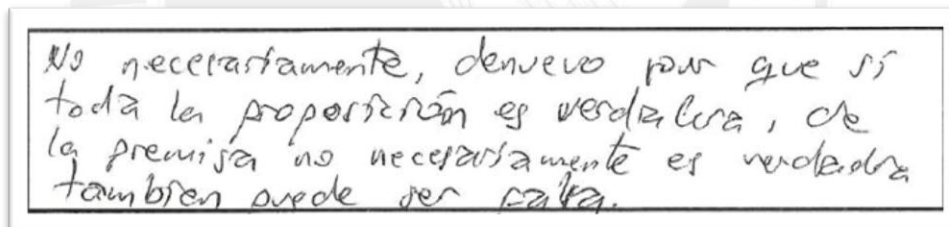 No necesariamente, denuevo por que sí
toda la proposición es verdadera, de
la premisa no necesariamente es verdadera
tambien puede ser falsa.